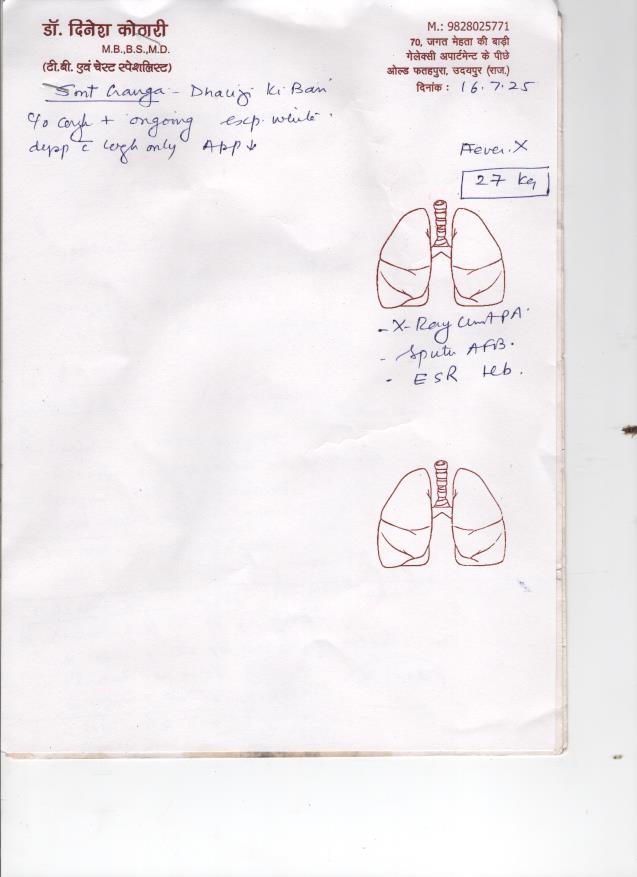 डॉ. दिनेश कोठारी
M.B.,B.S.,M.D.
(टी.बी. एवं चेस्ट स्पेशलिस्ट)
M.: 9828025771
70, जगत मेहता की बाड़ी
गेलेक्सी अपार्टमेन्ट के पीछे
ओल्ड फतहपुरा, उदयपुर (राज.)
दिनांक : 16.7.25
Smt Ganga - Dhauji Ki Bari
c/o cough + ongoing exp. white
dysp c cough only App ↓
Fever. X
27 kg
- X-Ray Chest PA.
- Sputu AFB.
- ESR Hb.